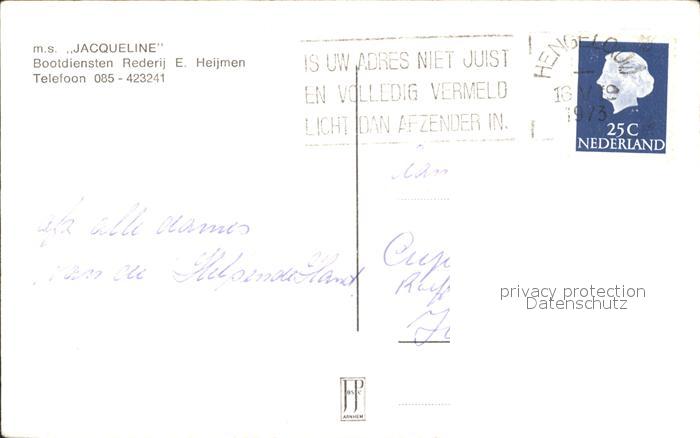 m.s. „JACQUELINE"
Bootdiensten Rederij E. Heijmen
Telefoon 085 - 423241
IS UW ADRES NIET JUIST
EN VOLLEDIG VERMELD
LICHT DAN AFZENDER IN.
HENGELO
1973
25 C
NEDERLAND
alle dames
van de Helpende Hand
privacy protection
Datenschutz
JosPé
ARNHEM